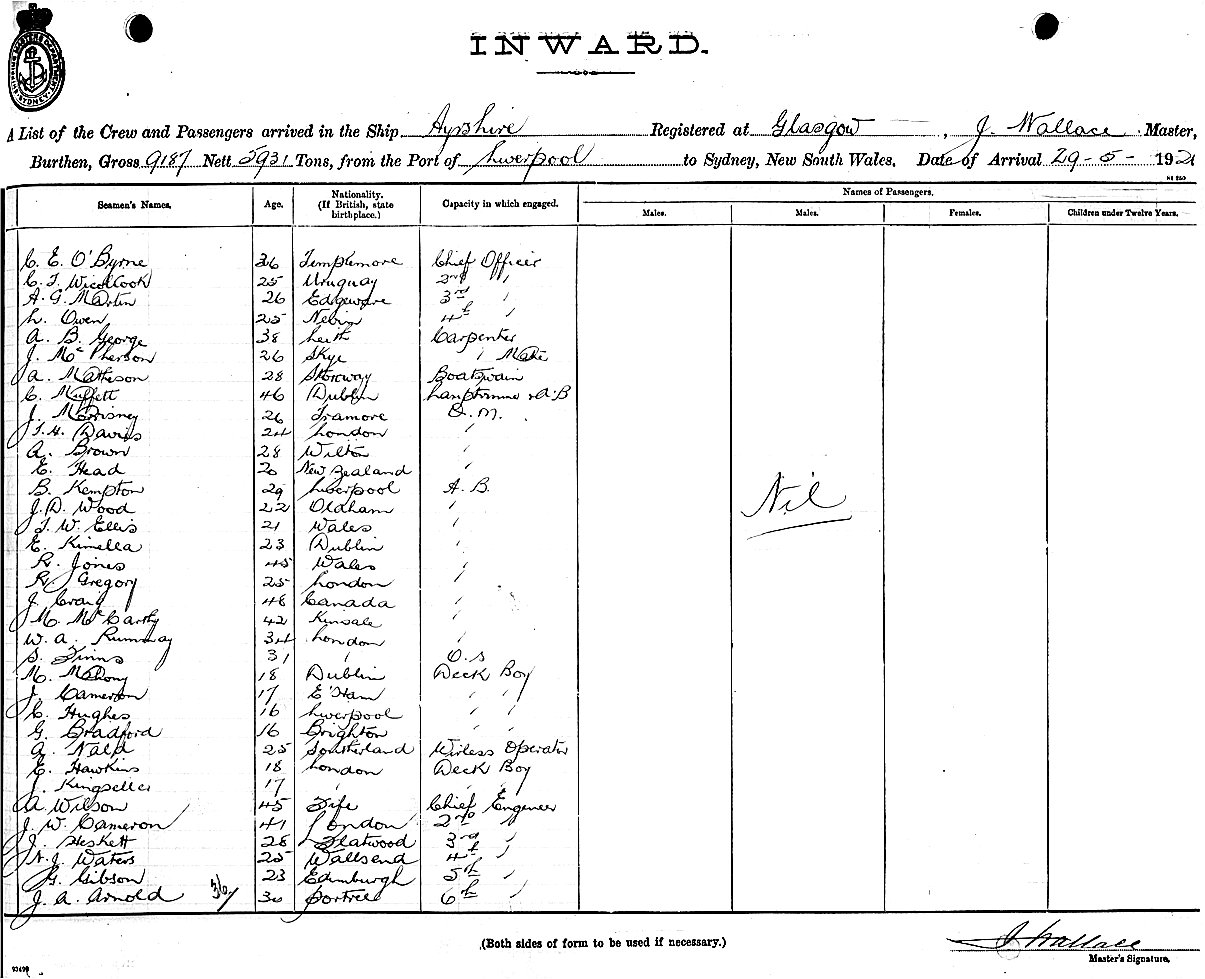 INWARD.
A List of the Crew and Passengers arrived in the Ship Ayrshire Registered at Glasgow, J. Wallace Master,
Burthen, Gross 9187 Nett 5931 Tons, from the Port of Liverpool to Sydney, New South Wales. Date of Arrival 29-5-1921
Seamen's Names. Age. Nationality. (If British, state birthplace.) Capacity in which engaged. Names of Passengers.
Males. Males. Females. Children under Twelve Years.
C. E. O'Byrne 36 Templemore Chief Officer
C. J. Wicollcok 25 Uruguay 2nd "
A. G. Martin 26 Edgeware 3rd "
L. Owen 25 Nevin 4th "
A. B. George 38 Leith Carpenter
J. McPherson 26 Skye " Mate
A. Matheson 28 Storoway Boatswain
C. Muffett 46 Dublin Lamptrimmer & A.B
J. Morrisney 26 Tramore Q.M.
J. H. Davies 24 London "
A. Brown 28 Wilton "
E. Head 20 New Zealand "
B. Kempton 29 Liverpool A.B.
J. D. Wood 22 Oldham "
J. W. Ellis 21 Wales "
E. Kinsella 23 Dublin "
R. Jones 45 Wales "
R. Gregory 25 London "
J. Craig 48 Canada "
M. McCarthy 42 Kinsale "
W. A. Rumway 34 London "
S. Finns 31 " O.S
M. Mahony 18 Dublin Deck Boy
J. Cameron 17 E'Ham " "
C. Hughes 16 Liverpool " "
G. Bradford 16 Brighton " "
A. Nald 25 Southerland Wirless Operator
E. Hawkins 18 London Deck Boy
J. Kingseller 17 " " "
A. Wilson 45 Fife Chief Engineer
J. W. Cameron 41 London 2nd "
J. Heskett 28 Flatwood 3rd "
N. J. Waters 25 Wallsend 4th "
G. Gibson 23 Edinburgh 5th "
J. A. Arnold 36/ 30 Portree 6th "
Nil
(Both sides of form to be used if necessary.)
J Wallace
Master's Signature.